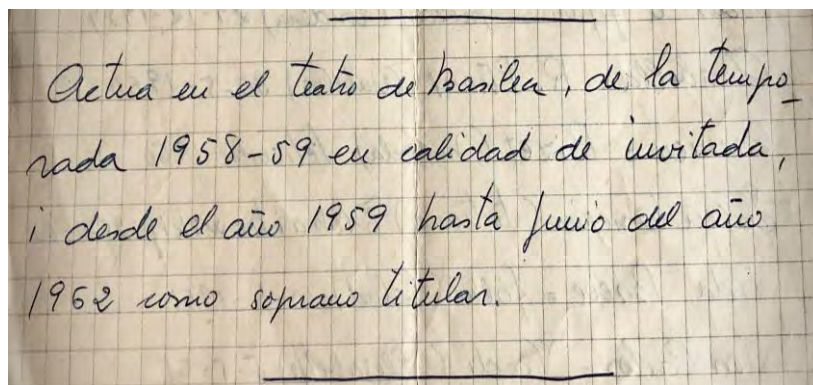 Actua en el teatro de Basilea, de la tempo_
rada 1958-59 en calidad de invitada,
i desde el año 1959 hasta Junio del año
1962 como soprano titular.